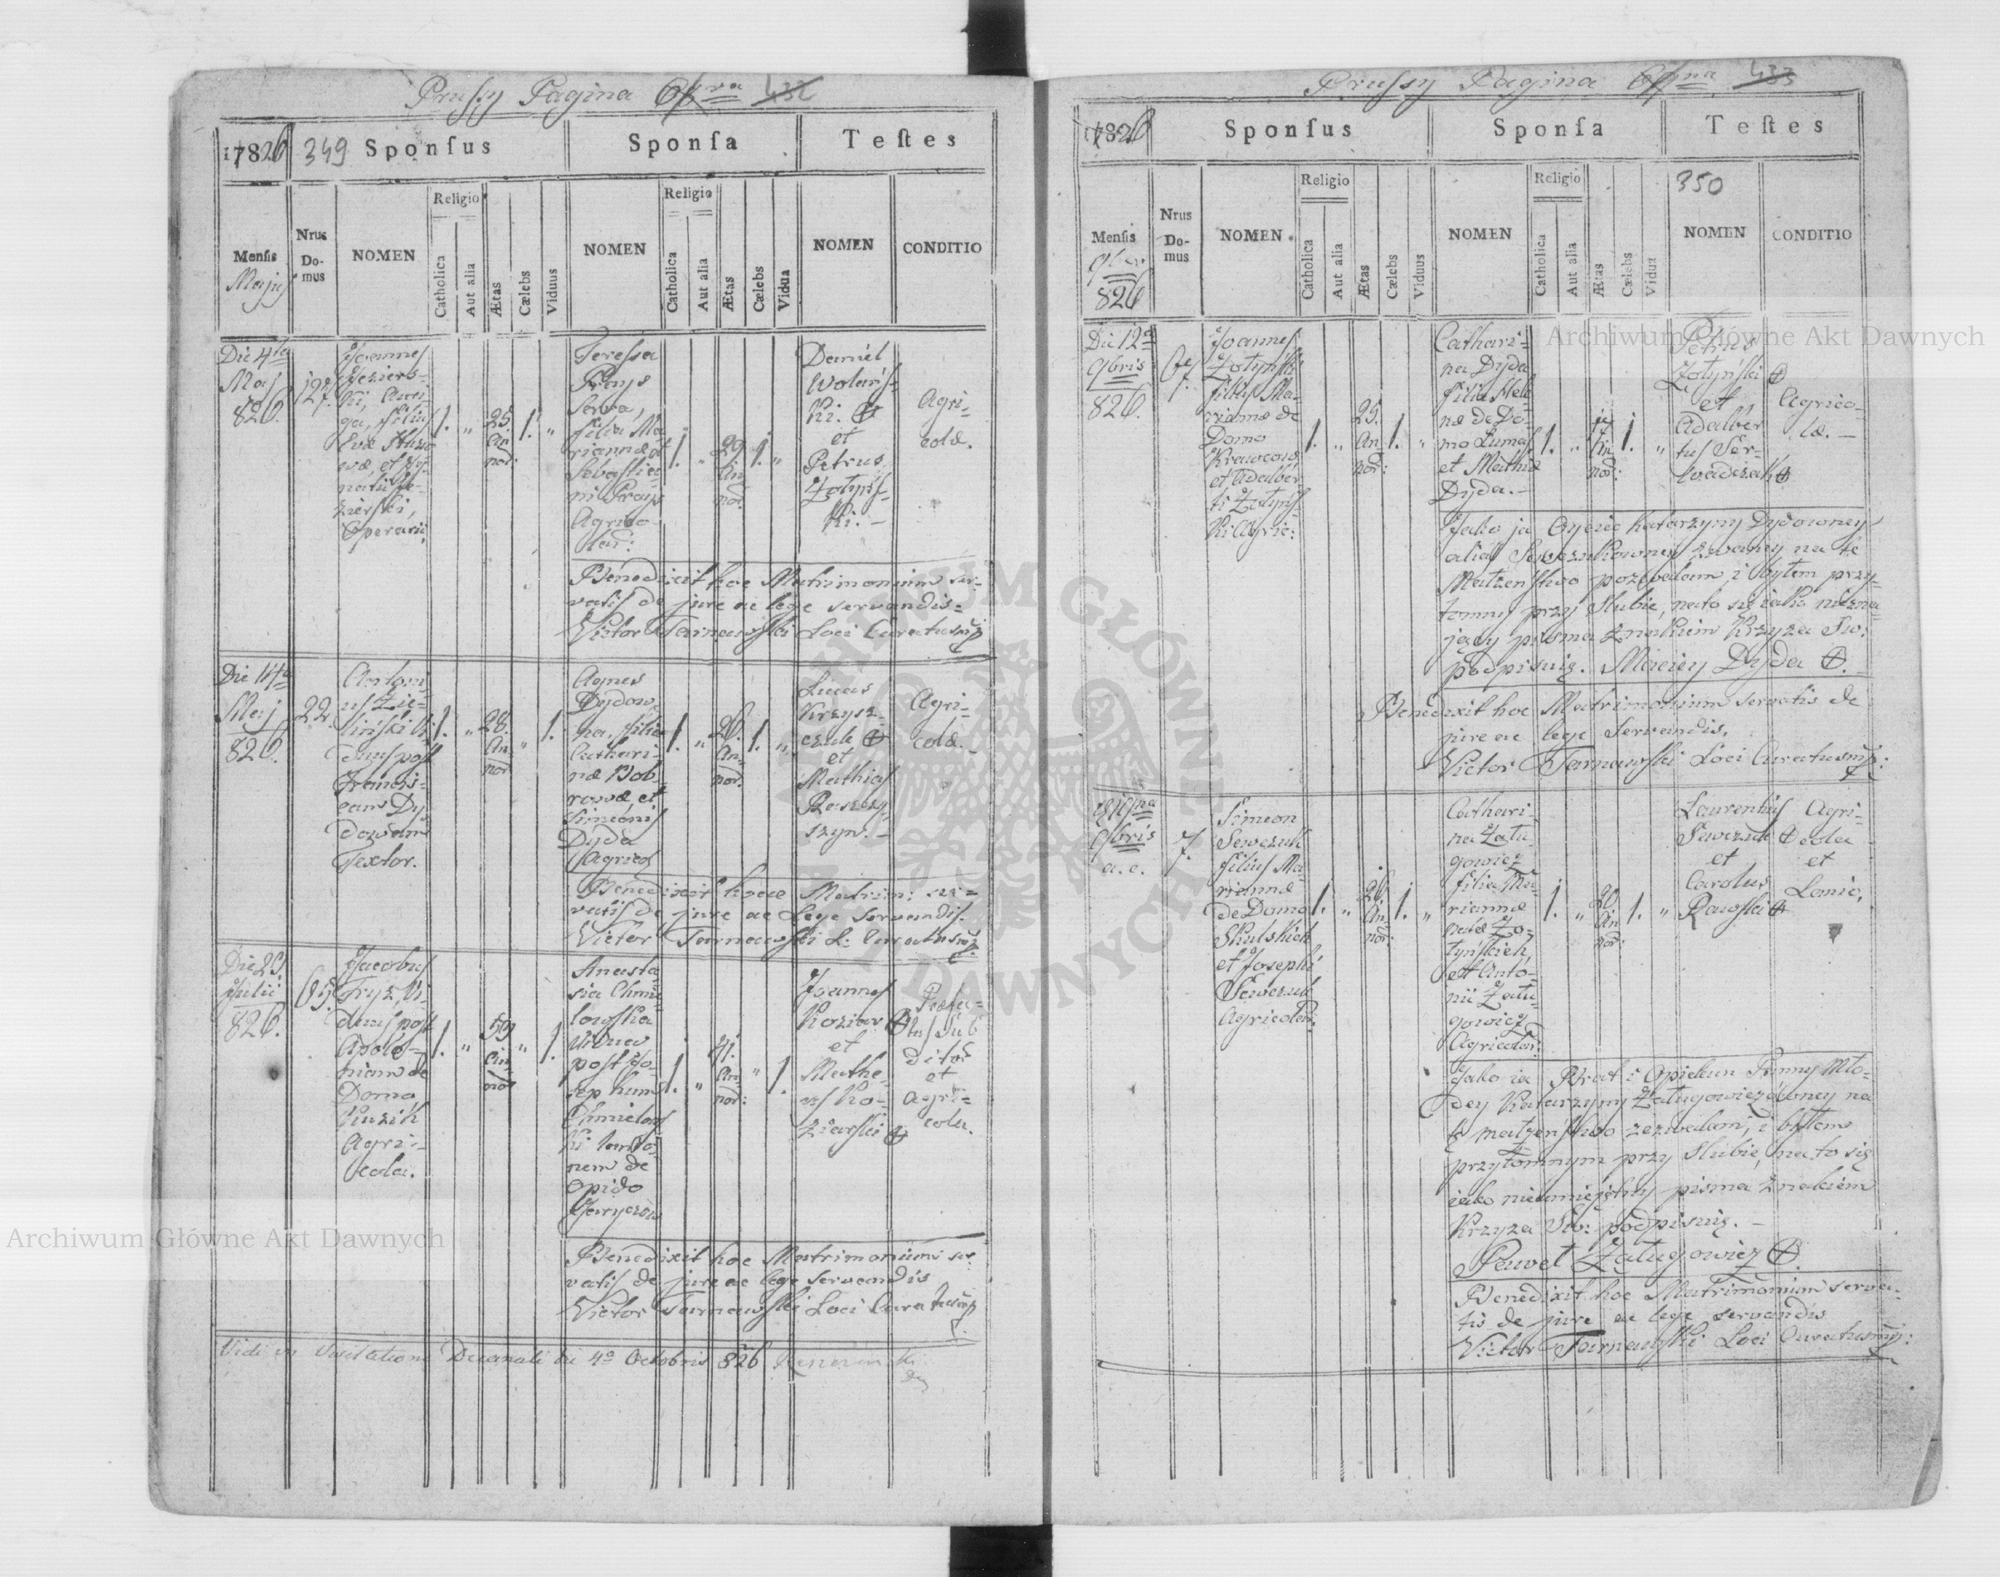 Prussy Pagina
1826 349 Sponsus Sponsa Testes
Religio Religio
Nrus
Mensis Do- NOMEN NOMEN NOMEN CONDITIO
Maij mus
Catholica Aut alia Ætas Cælebs Viduus
Catholica Aut alia Ætas Cælebs Vidua
Die 4ta
Maj
826.
127.
Joannes
Jeziers-
ki, Auri-
ga, filius
Evæ
wæ, et
Je-
zierski,
Operarii,
1. " 25. 1. "
An
nor:
Teressa
Prays
Serva,
filia Ma-
riannæ et
Sebastia-
ni Prays
Agrico-
lar:
1. " 29. 1. "
An
nor.
Daniel
Wolańs-
ki. +
et
Petrus
Żołyńs-
ki. -
Agri-
colæ.
Benedixit hoc Matrimonium ser-
vatis de jure ac lege servandis-
Victor Tarnawski Loci Curatus mp
Die 11ta
Maj
826.
22.
Anton-
us Zie-
liński Vi-
duus post
Francis-
cam Dy-
dowam
Textor.
1. " 28. " 1.
An
nor
Agnes
Dydow-
na, filia
Cathari-
næ Bob-
rowæ, et
Simeonis
Dyda
Agricol
1. " 26. 1. "
An-
nor.
Lucas
Krzysz-
czuk +
et
Mathias
Raszczy-
szyn. -
Agri-
colæ. -
Benedixit hocce Matrim: ser-
vatis de jure ac Lege servandis.
Victor Tarnawski L: Curatus mp
Die 23.
Julii
826.
65.
Jacobus
Fryz, Vi-
duus post
Apolo-
niam de
Domo
Kuzik
Agri-
cola.
1. " 59 " 1.
An
nor
Anasta-
sia Chmie-
lowska
Vidua
post Jo-
sephum
Chmielows-
ki
nem de
opido
Jaryczow
1. " 41. " 1.
An
nor:
Joannes
Koziar +
et
Mathe-
us Ko-
ziarski +
Præfe-
ctus Sub
ditor
et
agri-
cola.
Benedixit hoc Matrimonium ser-
vatis de jure ac lege servandis
Victor Tarnawski Loci Curatus mp
Vidi in Visitatione Decanali die 4a Octobris 826
Prussy Pagina
1826 Sponsus Sponsa Testes
Religio Religio 350
Nrus
Mensis Do- NOMEN NOMEN NOMEN CONDITIO
9bris mus
826
Catholica Aut alia Ætas Cælebs Viduus
Catholica Aut alia Ætas Cælebs Vidua
Die 12a
9bris
826.
67.
Joannes
Żołyński
filius Ma-
riannæ de
Domo
Krawcow
et Adalber-
ti Żołyńs-
ki Agric:
1. " 25. 1. "
An
nor:
Cathari-
na Dyda
filia Hele-
næ de Do-
mo Lumas
et Mathiæ
Dyda. -
1. " 17 1. "
An
nor:
Petrus
Żołyński +
et
Adalber
tus Ser-
waczak +
Agrico-
læ. -
Jako ja Oyciec Katarzyny Dydowney
alias Sewczukowney zwaney na te
Małżeństwo pozwalam i byłem przy-
tomny przy Slubie, na to się jako niezna
jący pisma znakiem Krzyża Sw:
podpisuię. Maciey Dyda +. -
Benedixit hoc Matrimonium servatis de
jure ac lege servandis.
Victor Tarnawski Loci Curatus mp:
9bris
a. c.
7.
Simeon
Sewczuk
filius Ma-
riannæ
de Domo
Skulskich
et Josephi
Sewczuk
Agricolar:
1. " 26. 1. "
An
nor:
Cathari-
na Zału-
gowicz
filia Ma-
riannæ
natæ Żo-
łyńskich
et Anto-
nii Zału-
gowicz
Agricolar:
1. " 20. 1. "
An
nor:
Laurentius
Sewczuk +
et
Carolus
Rawski +
Agri-
cola
et
Lanio.
Jako ia Brat i Opiekun Panny Mło-
dey Katarzyny Załugowiczowney na
te małżeństwo zezwalam, i byłem
przytomnym przy Slubie, na to się
iako nieumiejętny pisma znakiem
Krzyża Sw: podpisuię. -
Paweł Załugowicz +.
Benedixit hoc Matrimonium serva-
tis de jure ac lege servandis
Victor Tarnawski Loci Curatus mp:
Archiwum Główne Akt Dawnych
Archiwum Główne Akt Dawnych
ARCHIWUM GŁÓWNE AKT DAWNYCH